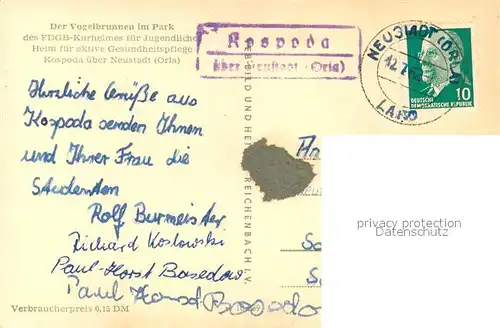 Der Vogelbrunnen im Park
des FDGB-Kurheimes für Jugendliche
Heim für aktive Gesundheitspflege
Kospoda über Neustadt (Orla)
Kospoda
über Neustadt (Orla)
NEUSTADT (ORLA)
LAND
10
DEUTSCHE
DEMOKRATISCHE REPUBLIK
Herzliche Grüße aus
Kospoda senden Ihnen
und Ihrer Frau die
Studenten
Rolf Burmeister
Richard Koslowski
Paul-Horst Basedow
Paul Horst Basedow
BILD UND HEIM REICHENBACH I. V.
An
privacy protection
Datenschutz
Verbraucherpreis 0,15 DM